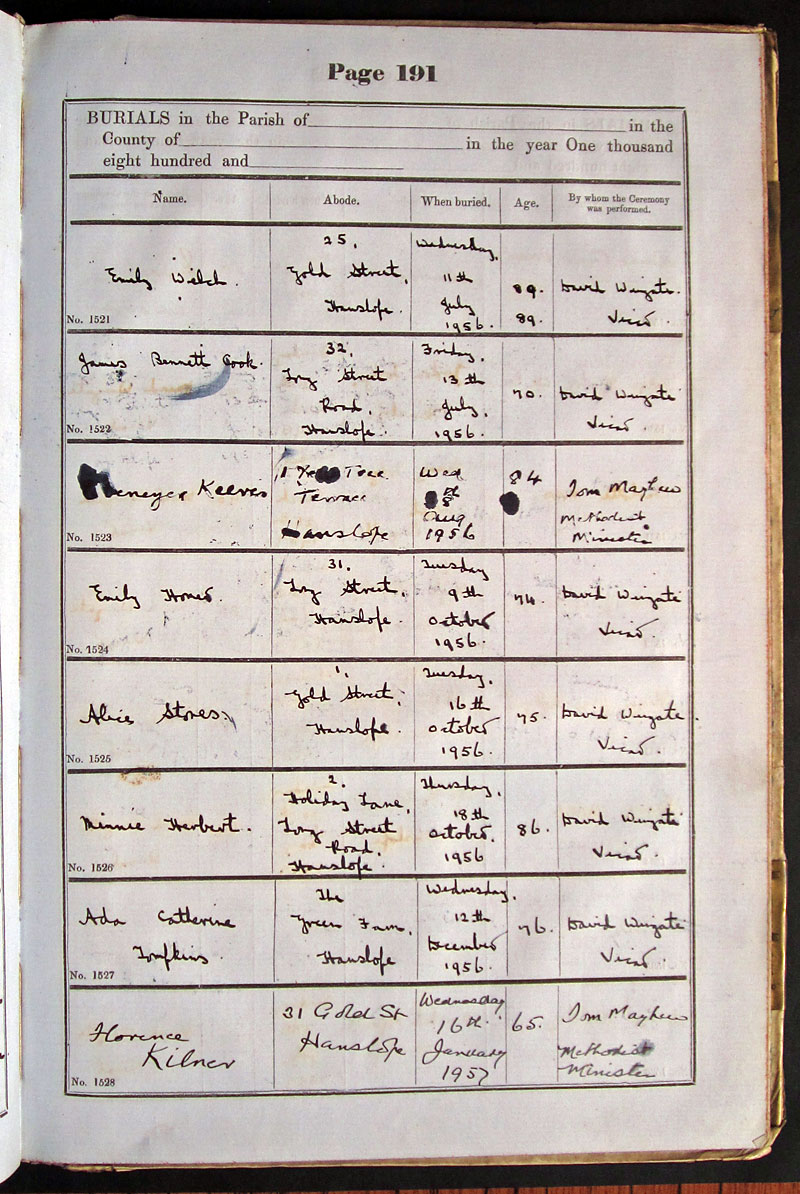 Page 191
BURIALS in the Parish of in the
County of in the year One thousand
eight hundred and
Name. Abode. When buried. Age. By whom the Ceremony was performed.
Emily Welch.
No. 1521
25,
Gold Street,
Hanslope.
Wednesday,
11th
July
1956.
89.
89.
David Wingate.
Vicar.
James Bennett Cook.
No. 1522
32,
Long Street
Road,
Hanslope.
Friday,
13th
July,
1956.
70.
David Wingate
Vicar.
Keeves
No. 1523
1 Tree
Terrace
Hanslope
Wed
8th
Aug
1956
84
Tom Mayhew
Methodist
Minister
Emily
No. 1524
31,
Long Street,
Hanslope.
Tuesday
9th
October
1956.
74.
David Wingate
Vicar.
Alice Stones.
No. 1525
1,
Gold Street,
Hanslope.
Tuesday,
16th
October
1956.
75.
David Wingate.
Vicar.
Minnie Herbert.
No. 1526
2,
Holiday Lane,
Long Street
Road,
Hanslope.
Thursday,
18th
October,
1956
86.
David Wingate
Vicar.
Ada Catherine
Tompkins.
No. 1527
The
Green Farm,
Hanslope
Wednesday,
12th
December
1956.
76.
David Wingate
Vicar.
Florence
Kilner
No. 1528
31 Gold St
Hanslope
Wednesday
16th
January
1957
65.
Tom Mayhew
Methodist
Minister